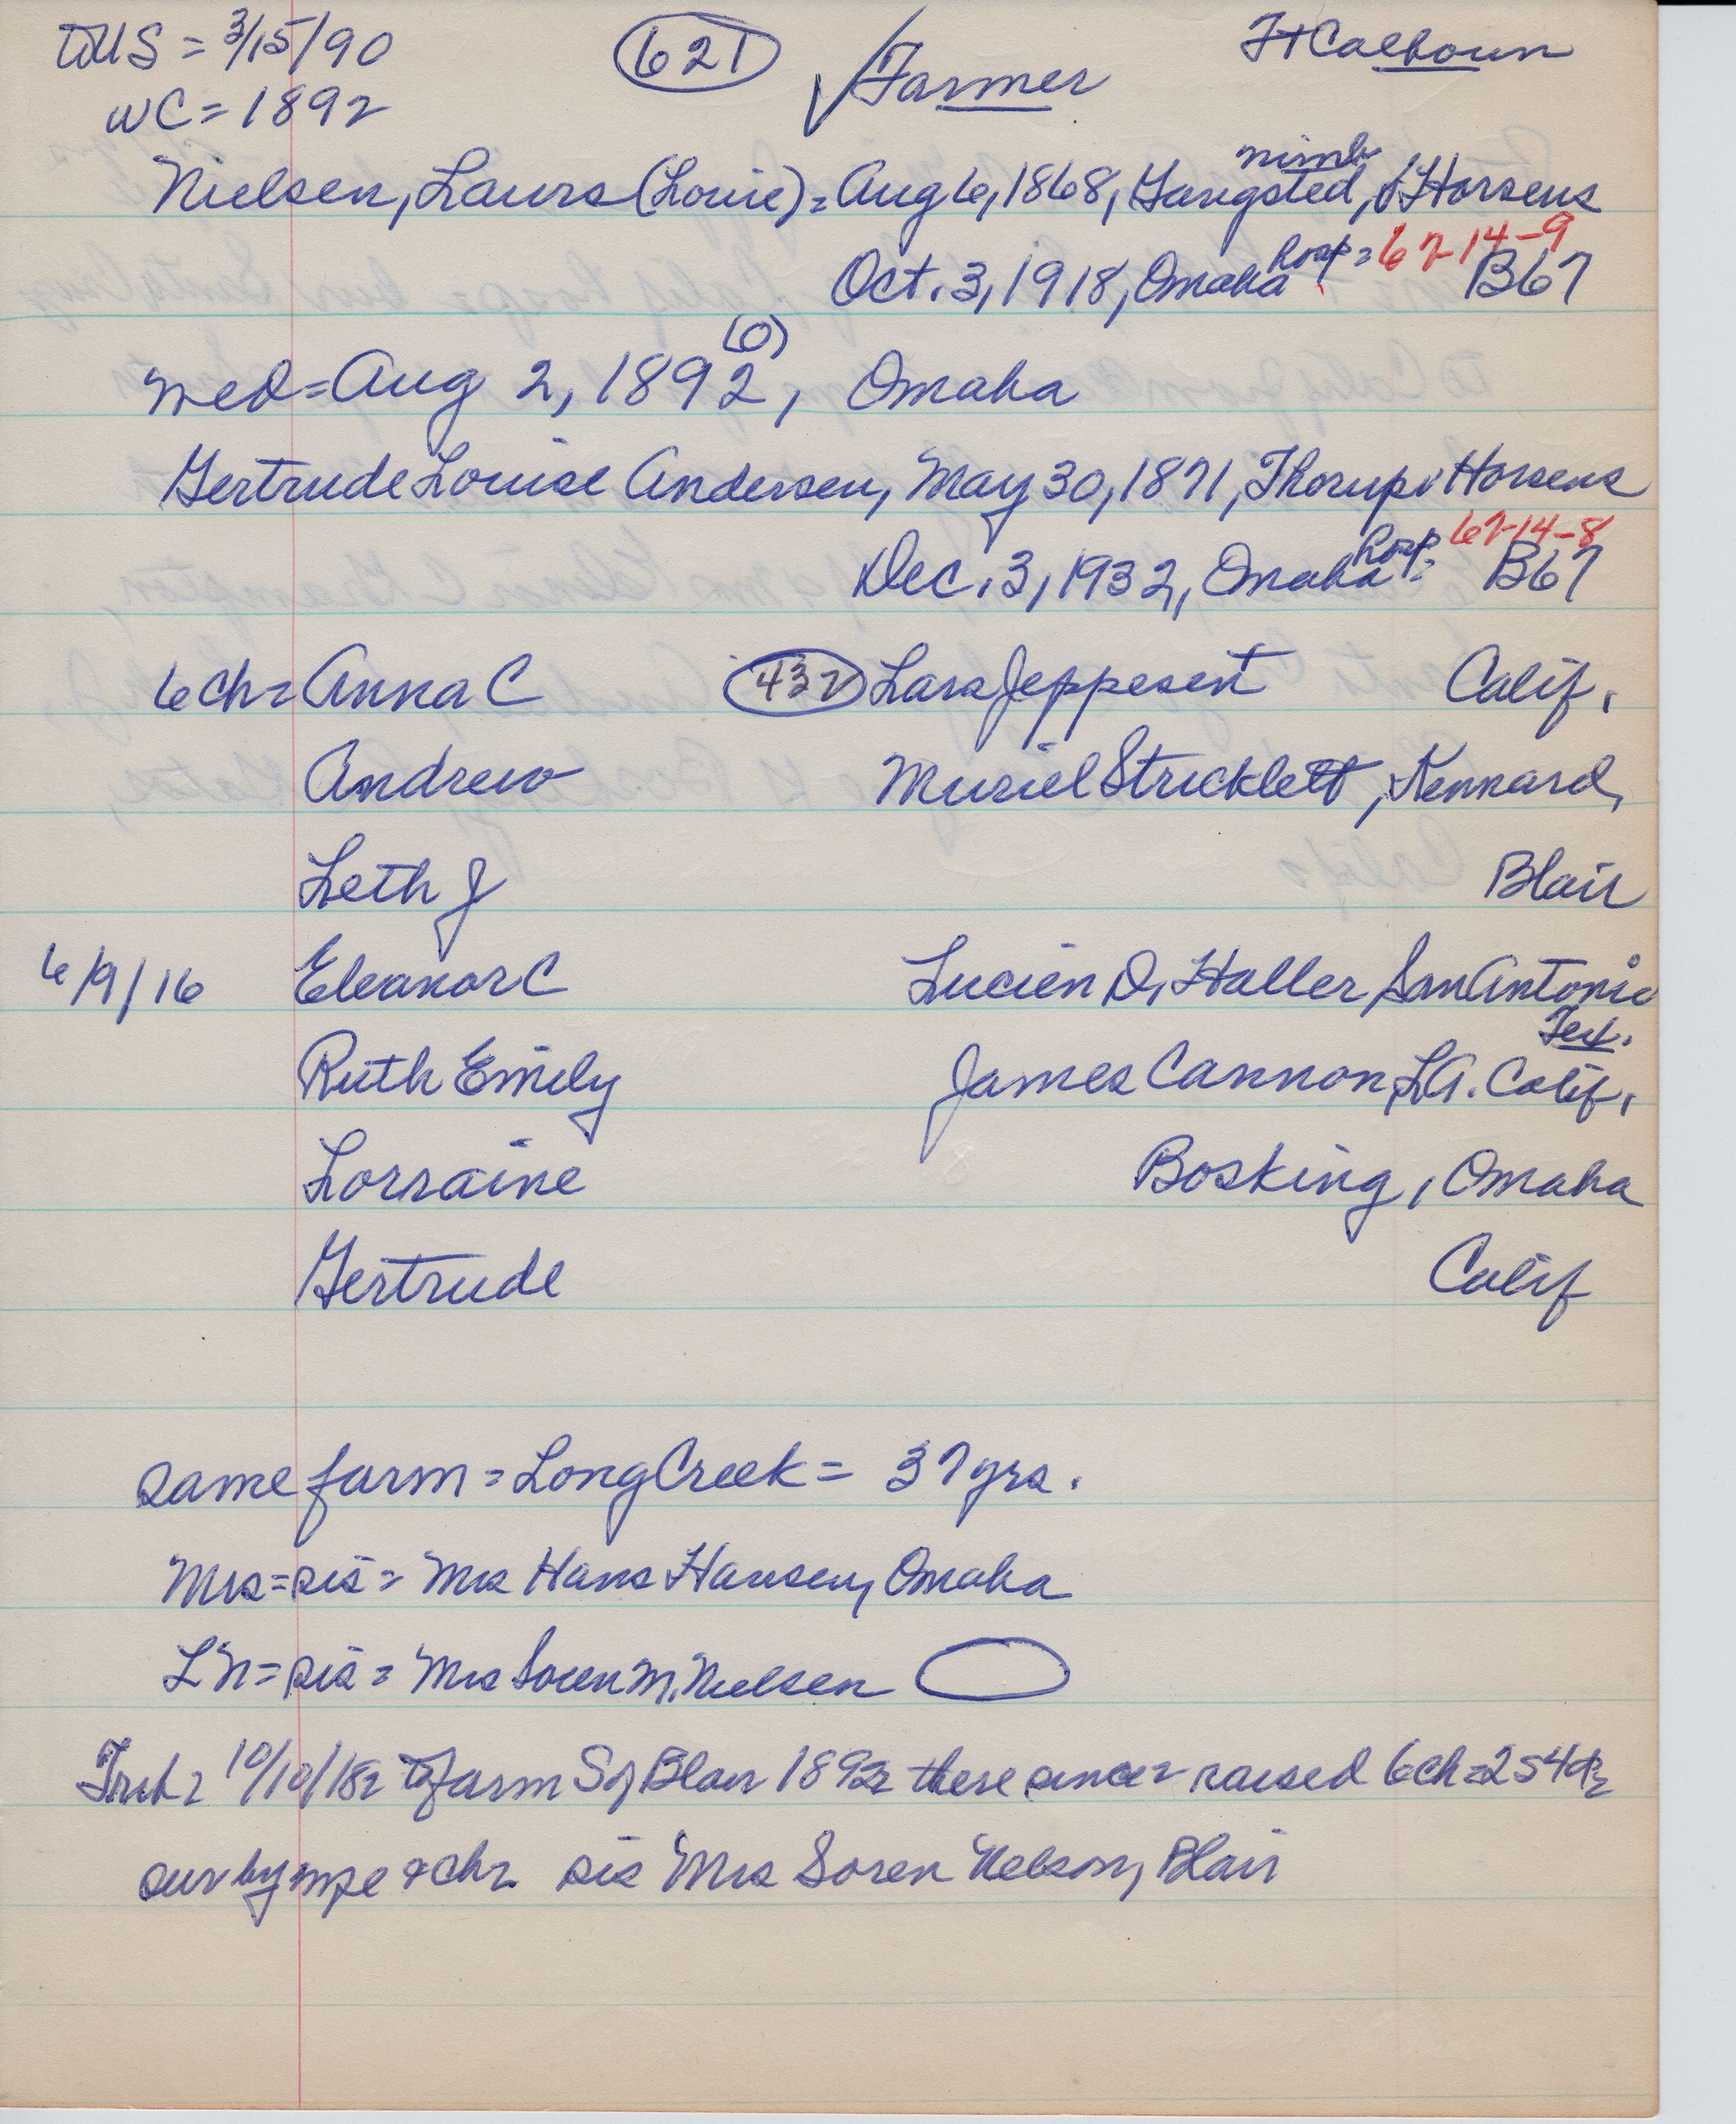 to US = 3/15/90 (621) √Farmer Ft Calhoun
WC = 1892
nimb
Nielsen, Laurs (Louie) = Aug 6, 1868, Gangsted, Horsens
hosp = 67-14-9
Oct. 3, 1918, Omaha B67
(0)
med = Aug 2, 1892, Omaha
Gertrude Louise Andersen, May 30, 1871, Thorup Horsens
hosp = 67-14-8
Dec. 3, 1932, Omaha B67
6 ch = Anna C (432) Lars Jeppesen Calif.
Andrew Muriel Stricklett, Kennard,
Leth J Blair
6/9/16 Eleanor C Lucien D. Haller, San Antonio
Tex.
Ruth Emily James Cannon, LA. Calif.
Lorraine Bosking, Omaha
Gertrude Calif
same farm = Long Creek = 37 yrs.
Mrs = sis = Mrs Hans Hansen, Omaha
LN = sis = Mrs Soren M. Nielsen
Trib = 10/10/18 = to farm S of Blair 1892 = there since = raised 6 ch = 2 s 4 d =
surv by & ch = sis Mrs Soren Nelson, Blair